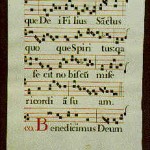 que De i Fi lius Sāctus
quo que Spiri tus: qa
fe cit no bíscū mise
ricordi ā su am.
co. Benedicimus Deum